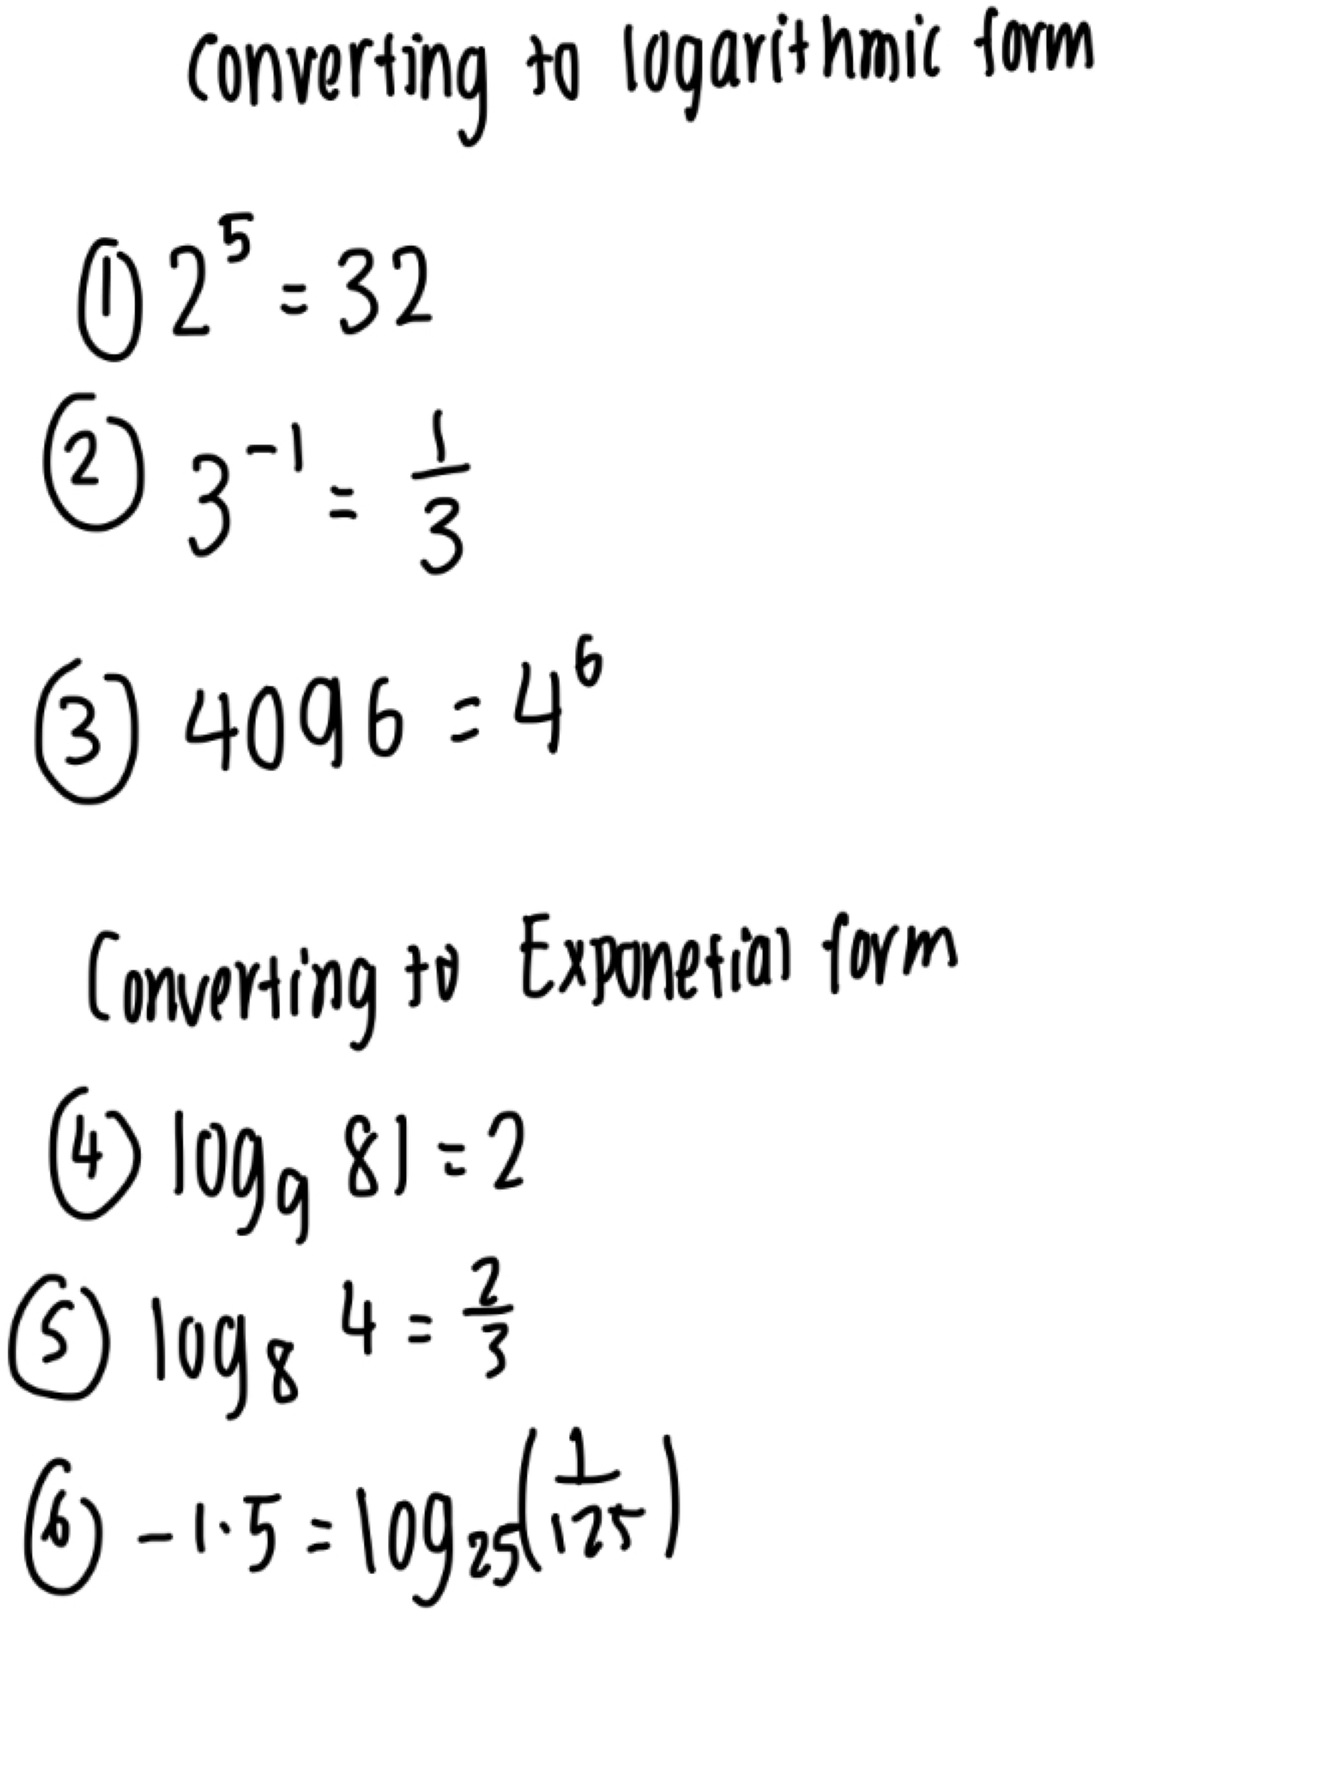 converting to logarithmic form
① 2⁵ = 32
② 3⁻¹ = 1/3
③ 4096 = 4⁶
Converting to Exponetial form
④ log₉ 81 = 2
⑤ log₈ 4 = 2/3
⑥ -1.5 = log₂₅(1/125)